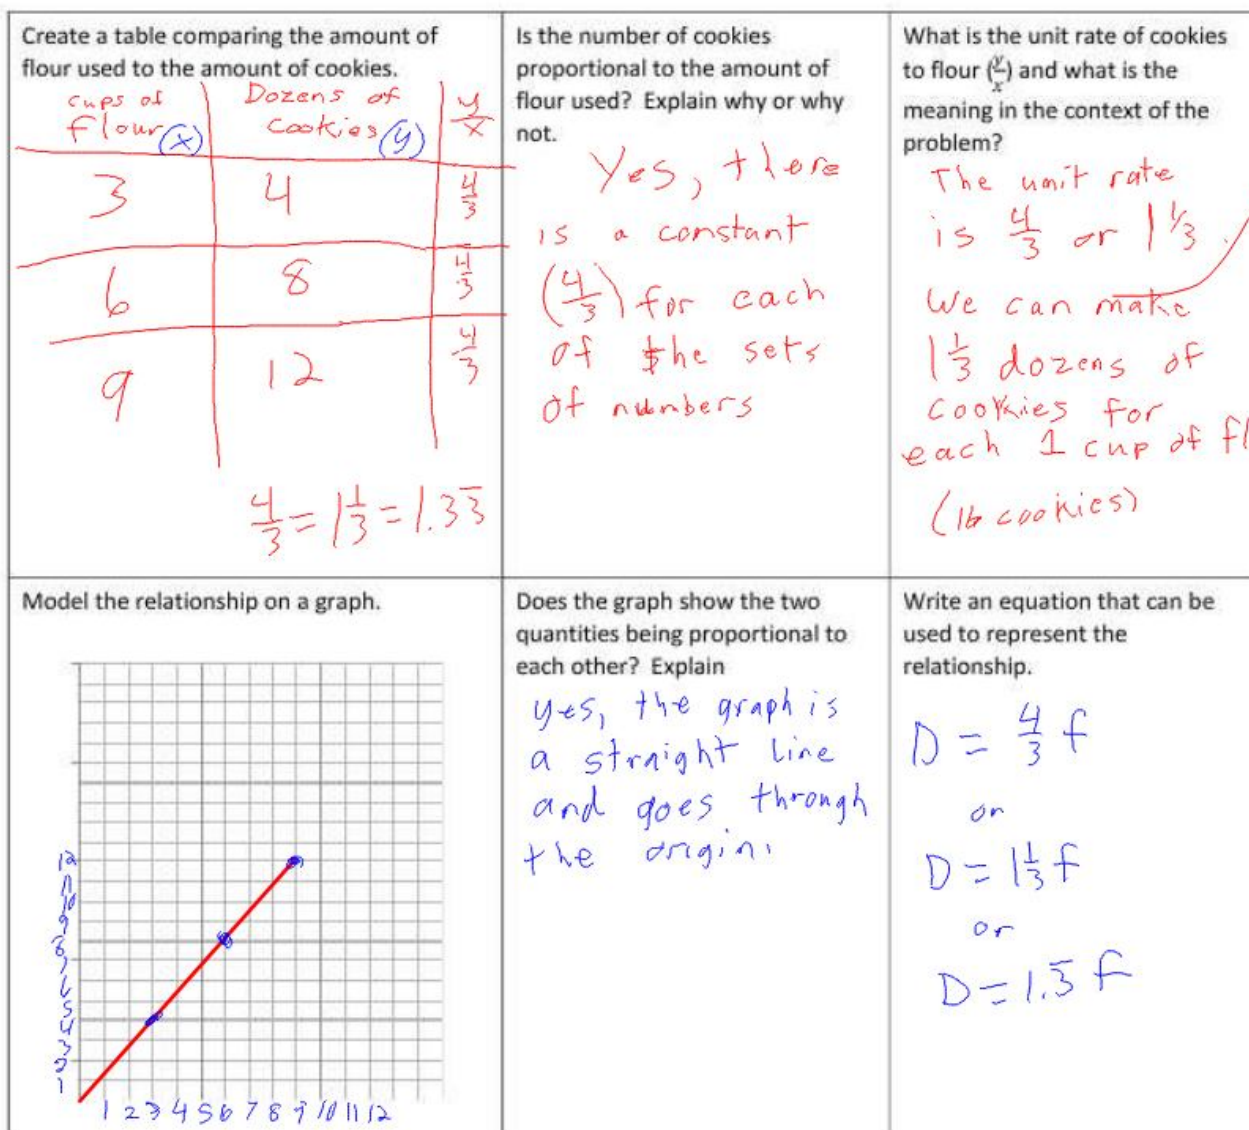 Create a table comparing the amount of
flour used to the amount of cookies.
cups of
flour (x)
Dozens of
cookies (y)
y/x
3 4 4/3
6 8 4/3
9 12 4/3
4/3 = 1 1/3 = 1.33̅
Is the number of cookies
proportional to the amount of
flour used? Explain why or why
not.
Yes, there
is a constant
(4/3) for each
of the sets
of numbers
What is the unit rate of cookies
to flour (y/x) and what is the
meaning in the context of the
problem?
The unit rate
is 4/3 or 1 1/3.
We can make
1 1/3 dozens of
cookies for
each 1 cup of fl
(16 cookies)
Model the relationship on a graph.
12
11
10
9
8
7
6
5
4
3
2
1
1 2 3 4 5 6 7 8 9 10 11 12
Does the graph show the two
quantities being proportional to
each other? Explain
yes, the graph is
a straight line
and goes through
the origin.
Write an equation that can be
used to represent the
relationship.
D = 4/3 f
or
D = 1 1/3 f
or
D = 1.3̅ f